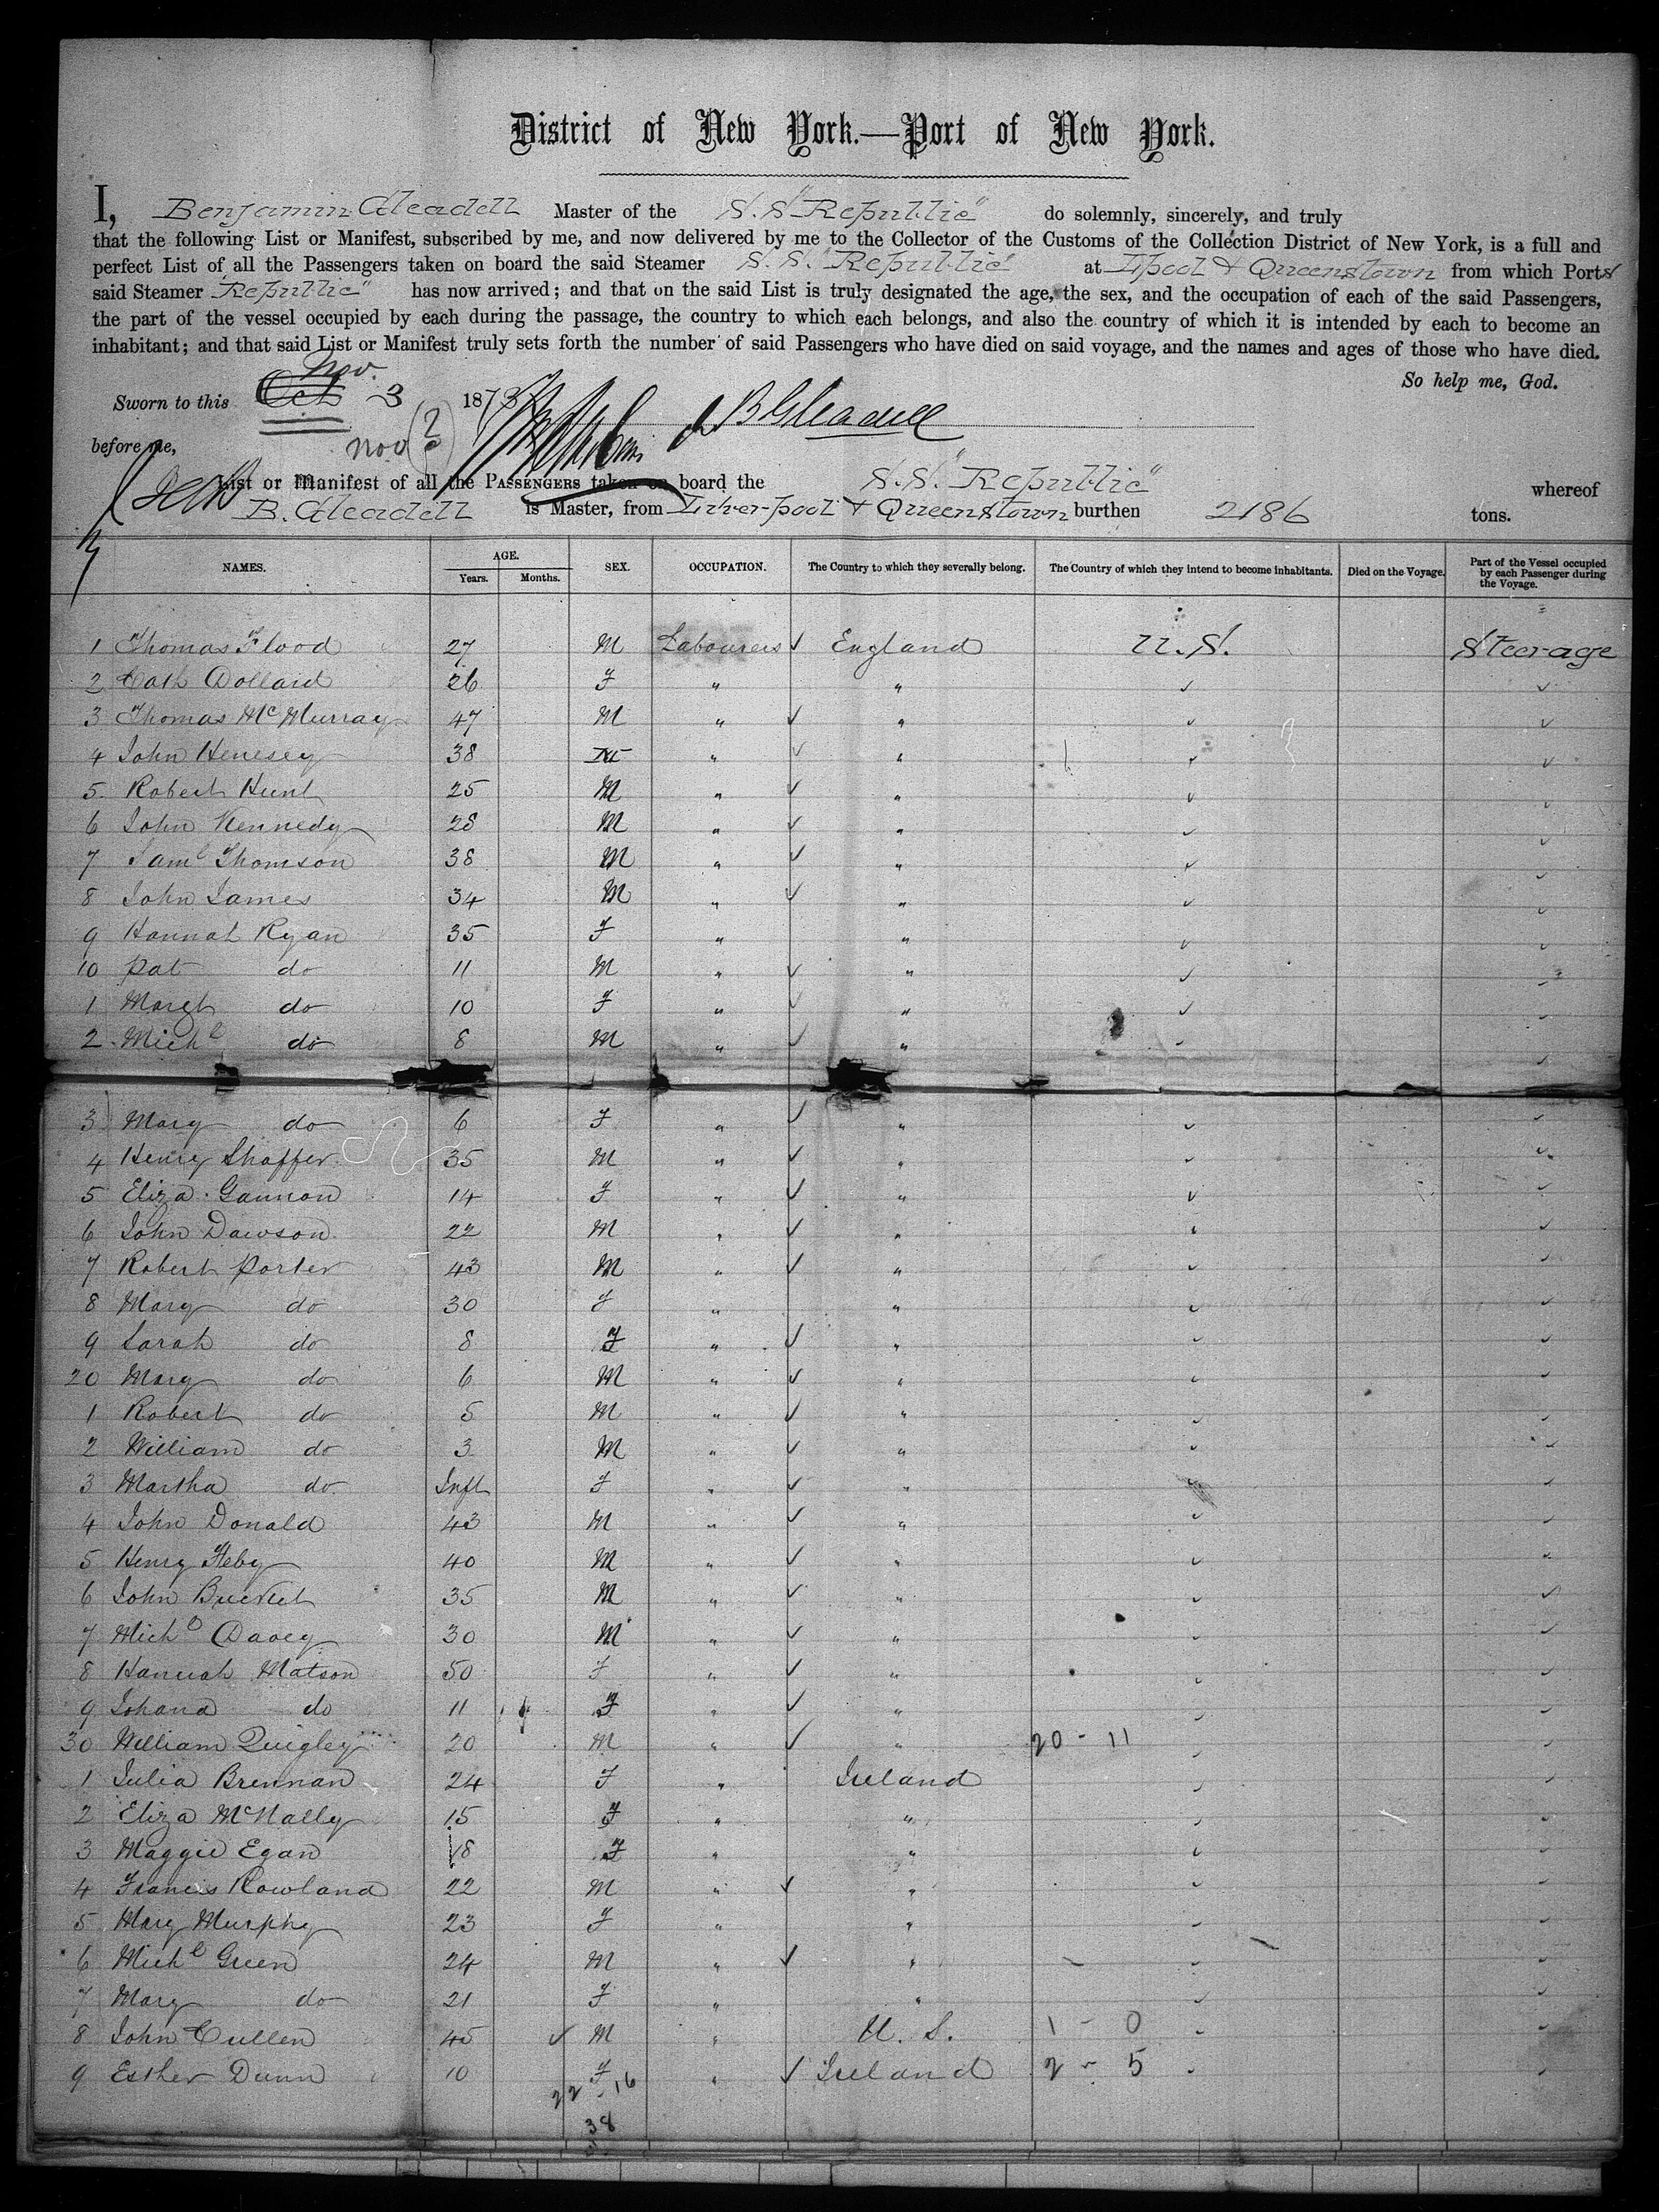 District of New York.—Port of New York.
I, Benjamin Gleadell Master of the S.S "Republic" do solemnly, sincerely, and truly
that the following List or Manifest, subscribed by me, and now delivered by me to the Collector of the Customs of the Collection District of New York, is a full and
perfect List of all the Passengers taken on board the said Steamer S.S. "Republic" at Lpool & Queenstown from which Ports
said Steamer Republic" has now arrived; and that on the said List is truly designated the age, the sex, and the occupation of each of the said Passengers,
the part of the vessel occupied by each during the passage, the country to which each belongs, and also the country of which it is intended by each to become an
inhabitant; and that said List or Manifest truly sets forth the number of said Passengers who have died on said voyage, and the names and ages of those who have died.
So help me, God.
Nov.
Sworn to this Oct 3 1873 B Gleadell
before me, Nov (?)
List or Manifest of all the PASSENGERS taken on board the S.S. "Republic" whereof
B. Gleadell is Master, from Liverpool & Queenstown burthen 2186 tons.
NAMES. AGE. Years. Months. SEX. OCCUPATION. The Country to which they severally belong. The Country of which they intend to become inhabitants. Died on the Voyage. Part of the Vessel occupied by each Passenger during the Voyage.
1 Thomas Flood 27 M Labourers ✓ England U.S. Steerage
2 Cath Dollard 26 F " " ✓ ✓
3 Thomas McMurray 47 M " ✓ " ✓ ✓
4 John Henesey 38 M " ✓ " ✓ ✓
5 Robert Hunt 25 M " ✓ " ✓ ✓
6 John Kennedy 28 M " ✓ " ✓ ✓
7 Saml Thomson 38 M " ✓ " ✓ ✓
8 John James 34 M " ✓ " ✓ ✓
9 Hannah Ryan 35 F " " ✓ ✓
10 Pat do 11 M " ✓ " ✓ ✓
1 Margt do 10 F " ✓ " ✓ ✓
2 Michl do 8 M " ✓ " ✓ ✓
3 Mary do 6 F " ✓ " ✓ ✓
4 Henry Shaffer 35 M " ✓ " ✓ ✓
5 Eliza Gannon 14 F " ✓ " ✓ ✓
6 John Dawson 22 M " ✓ " ✓ ✓
7 Robert Porter 43 M " ✓ " ✓ ✓
8 Mary do 30 F " " ✓ ✓
9 Sarah do 8 F " ✓ " ✓ ✓
20 Mary do 6 M " ✓ " ✓ ✓
1 Robert do 5 M " ✓ " ✓ ✓
2 William do 3 M " ✓ " ✓ ✓
3 Martha do Inft F " ✓ " ✓ ✓
4 John Donald 43 M " ✓ " ✓ ✓
5 Henry Feby 40 M " ✓ " ✓ ✓
6 John 35 M " ✓ " ✓ ✓
7 Michl Davey 30 M " ✓ " ✓ ✓
8 Hannah Matson 50 F " ✓ " ✓ ✓
9 Johana do 11 F " ✓ " ✓ ✓
30 William Quigley 20 M " ✓ " 20 - 11 ✓ ✓
1 Julia Brennan 24 F " Ireland ✓ ✓
2 Eliza McNally 15 F " " ✓ ✓
3 Maggie Egan 18 F " " ✓ ✓
4 Francis Rowland 22 M " ✓ " ✓ ✓
5 Mary Murphy 23 F " " ✓ ✓
6 Michl Green 24 M " ✓ " ✓ ✓
7 Mary do 21 F " " ✓ ✓
8 John Cullen 45 ✓ M " U.S. 1 - 0 ✓ ✓
9 Esther Dunn 10 F " ✓ Ireland 2 - 5 ✓ ✓
22 - 16
38